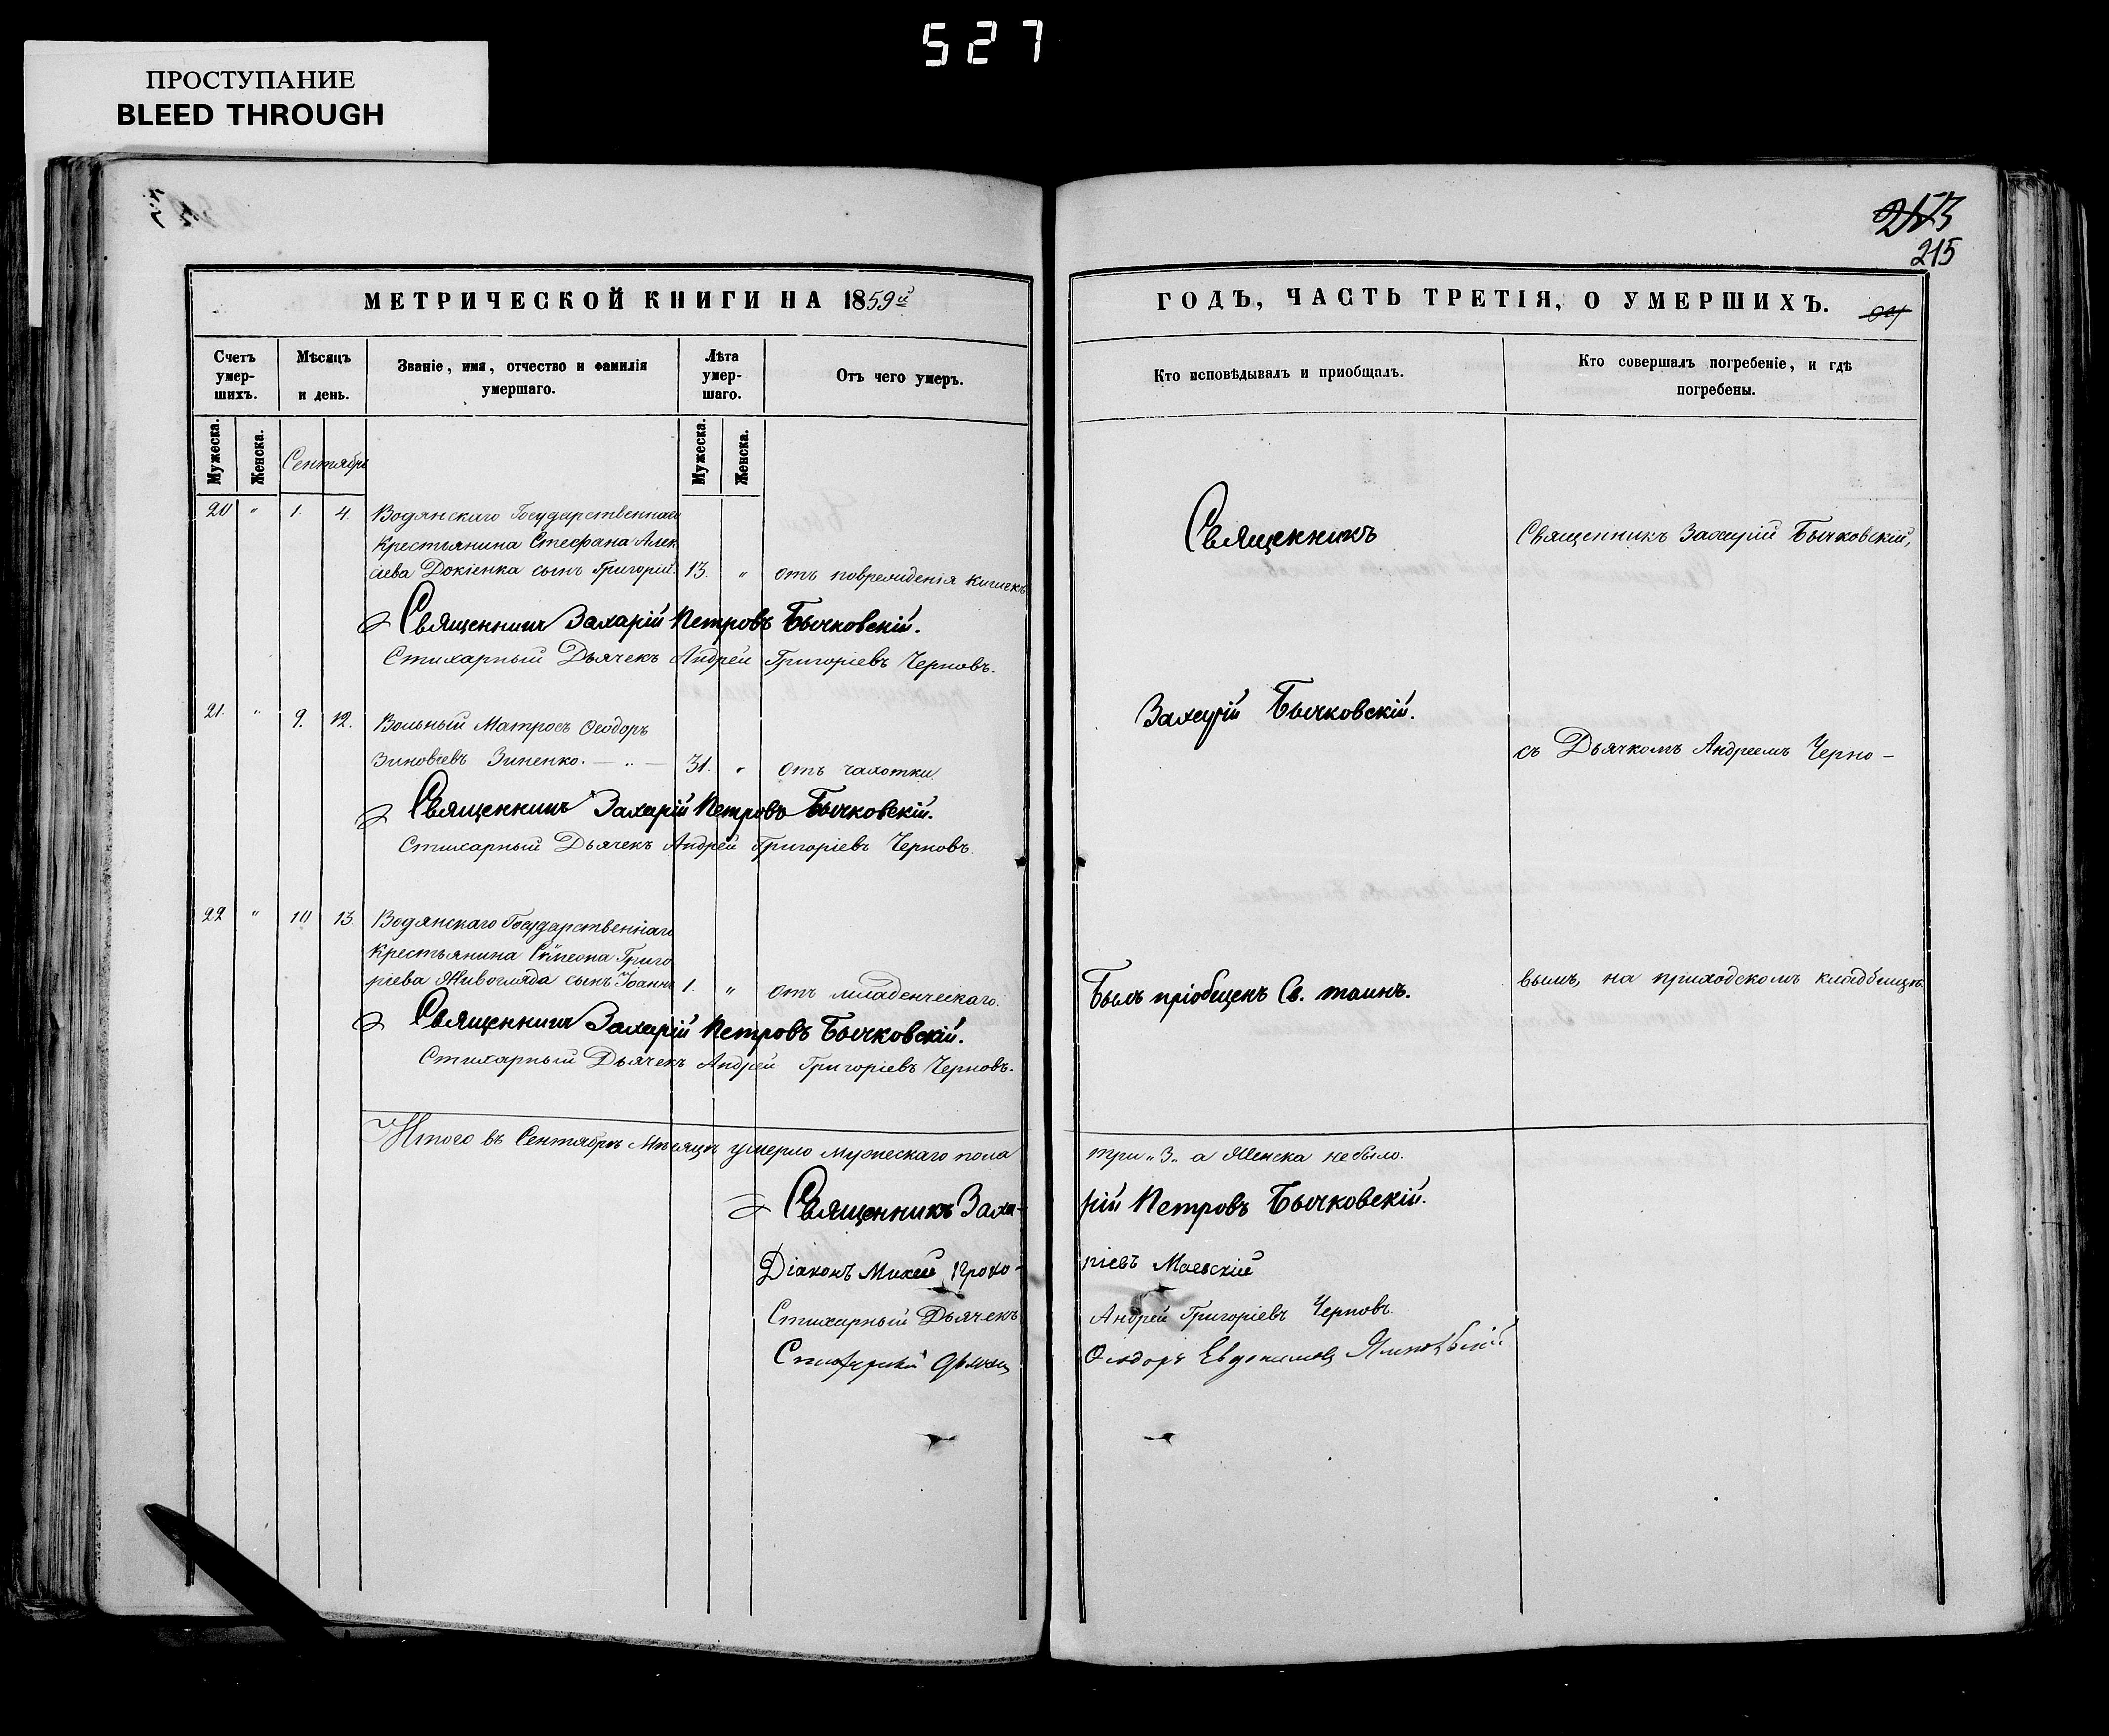 527
ПРОСТУПАНИЕ
BLEED THROUGH
253
215
МЕТРИЧЕСКОЙ КНИГИ НА 1859й
ГОДЪ, ЧАСТЬ ТРЕТІЯ, О УМЕРШИХЪ.
Счетъ умер-шихъ.
Мѣсяцъ и день.
Званіе, имя, отчество и фамилія умершаго.
Лѣта умер-шаго.
Отъ чего умеръ.
Кто исповѣдывалъ и приобщалъ.
Кто совершалъ погребеніе, и гдѣ погребены.
Мужеска.
Женска.
Сентябрь
Мужеска.
Женска.
20 " 1. 4. Водянскаго Государственнаго
Крестьянина Стефана Алек
сіева Докіенка сынъ Григорій. 13. " отъ поврежденія кишекъ
Священникъ Захарій Петровъ Бычковскій.
Стихарный Дьячекъ Андрей Григоріевъ Черновъ.
21. " 9. 12. Вольный Матросъ Ѳеодоръ
Зиновіевъ Зиненко. — .. — 31. " отъ чахотки.
Священникъ Захарій Петровъ Бычковскій.
Стихарный Дьячекъ Андрей Григоріевъ Черновъ.
22 " 10 13. Водянскаго Государственнаго
Крестьянина Симеона Григо
ріева Живогляда сынъ Іоаннъ 1. " отъ младенческаго.
Священникъ Захарій Петровъ Бычковскій.
Стихарный Дьячекъ Андрей Григоріевъ Черновъ.
Священникъ
Захарій Бычковскій.
Былъ пріобщенъ Св. таинъ.
Священникъ Захарій Бычковскій,
съ Дьячкомъ Андреемъ Черно-
вымъ, на приходскомъ кладбищѣ.
Итого въ Сентябрѣ Мѣсяцѣ умерло мужескаго пола три „3„ а Женска небыло.
Священникъ Заха-рій Петровъ Бычковскій.
Діаконъ Михей Гріевъ Маевскій
Стихарный Дьячекъ Андрей Григоріевъ Черновъ.
Стихарный Дьячекъ Ѳеодоръ Евдокимовъ